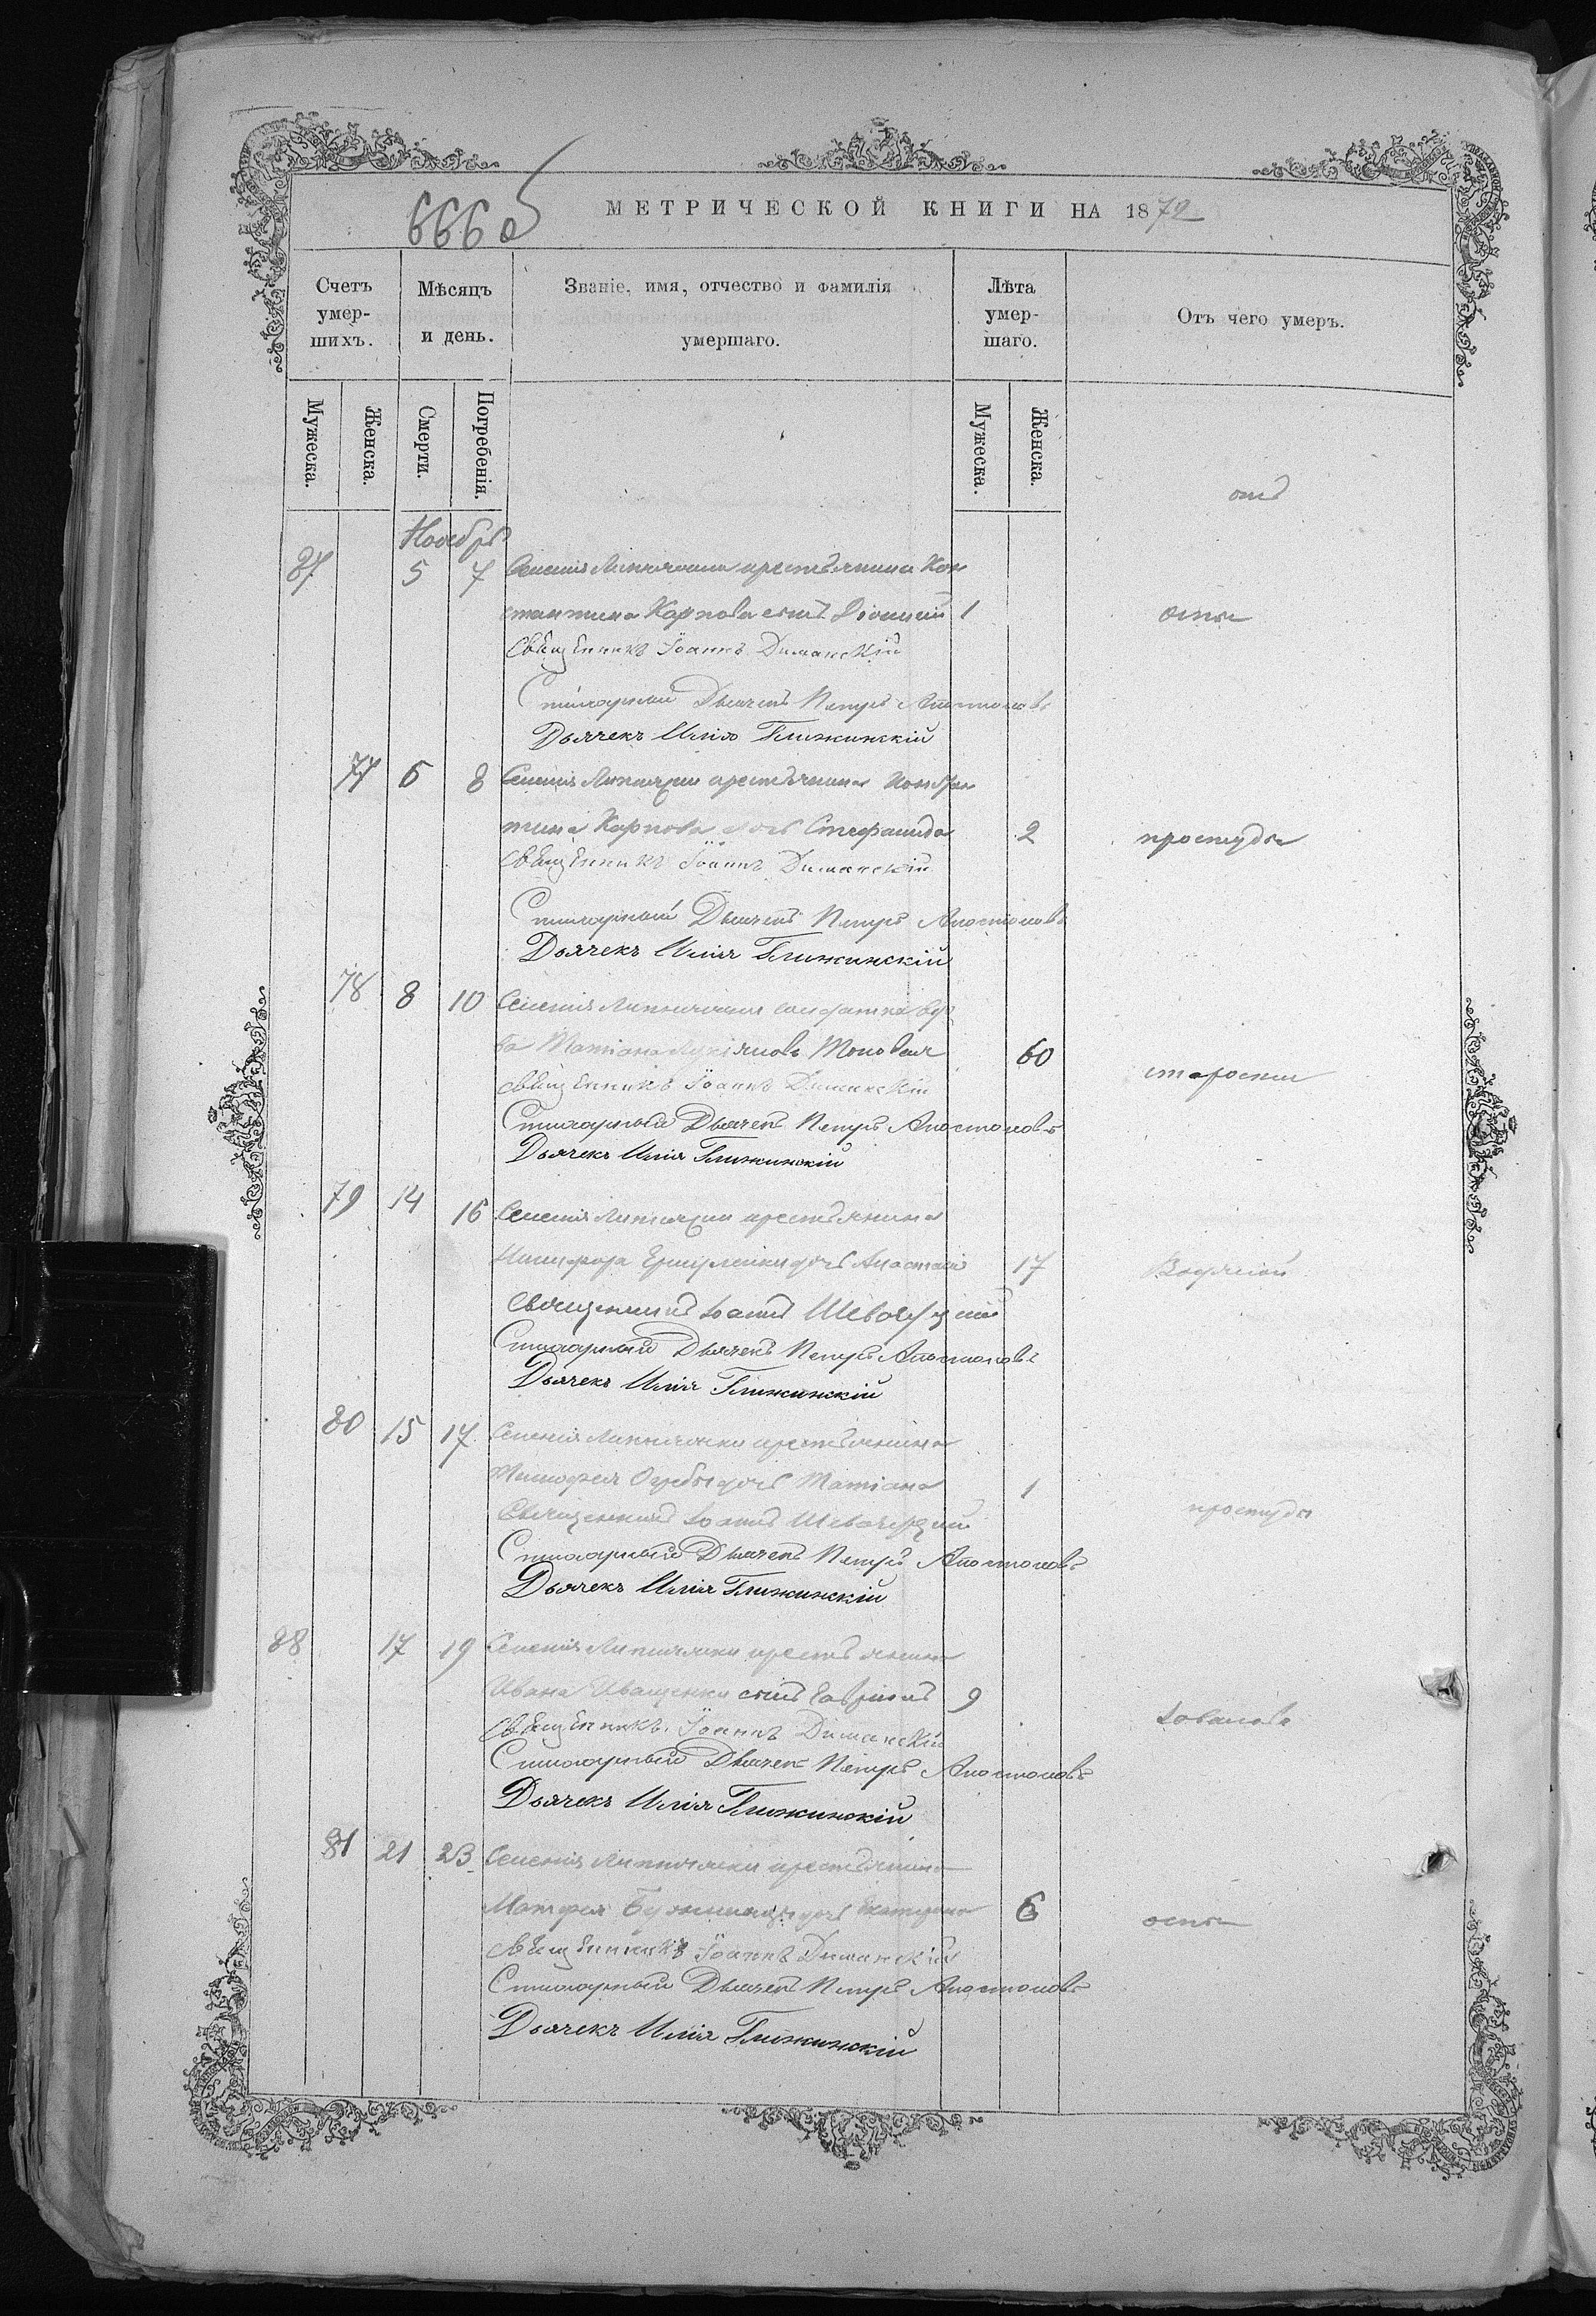 666 об
МЕТРИЧЕСКОЙ КНИГИ НА 1872
Счетъ умер-шихъ.
Мѣсяцъ и день.
Званіе, имя, отчество и фамилія умершаго.
Лѣта умер-шаго.
Отъ чего умеръ.
Мужеска.
Женска.
Смерти.
Погребенія.
Мужеска.
Женска.
отъ
Ноябрь
87 5 7 Селенія крестьянина Кон
стантина Карпова сынъ 1 оспы
Священникъ Іоаннъ Диманскій
Стихарный Дьячекъ Петръ Апостоловъ
Дьячекъ Илія Глижинскій
77 6 8 Селенія крестьянина
тина Карпова дочь Стефанида 2 простуды
Священникъ Іоаннъ Диманскій
Стихарный Дьячекъ Петръ Апостоловъ
Дьячекъ Илія Глижинскій
78 8 10 Селенія солдатка вдо
ва Татіана 60 старости
Священникъ Іоаннъ Диманскій
Стихарный Дьячекъ Петръ Апостоловъ
Дьячекъ Илія Глижинскій
79 14 16 Селенія крестьянина
дочь 17 Водяной
Священникъ Іоаннъ
Стихарный Дьячекъ Петръ Апостоловъ
Дьячекъ Илія Глижинскій
80 15 17 Селенія крестьянина
Тимофея дочь Татіана 1 простуды
Священникъ Іоаннъ
Стихарный Дьячекъ Петръ Апостоловъ
Дьячекъ Илія Глижинскій
88 17 19 Селенія крестьянина
Ивана Иващенки сынъ Гавріилъ 9
Священникъ Іоаннъ Диманскій
Стихарный Дьячекъ Петръ Апостоловъ
Дьячекъ Илія Глижинскій
81 21 23 Селенія крестьянина
Матфея дочь Екатерина 6 оспы
Священникъ Іоаннъ Диманскій
Стихарный Дьячекъ Петръ Апостоловъ
Дьячекъ Илія Глижинскій